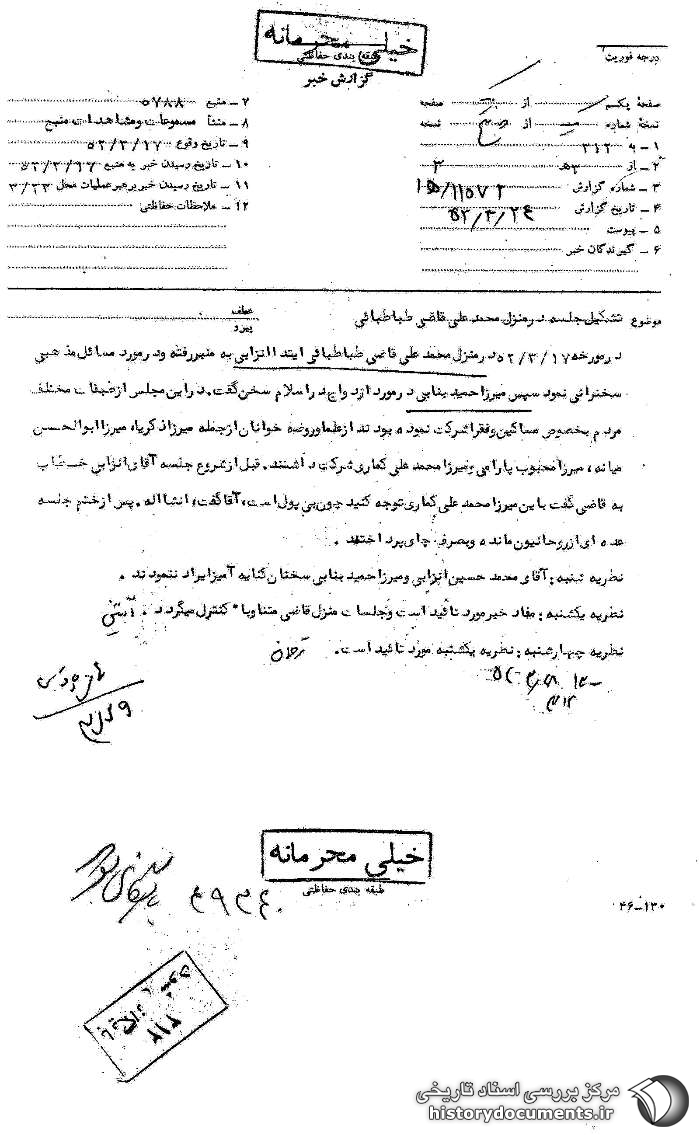 خیلی محرمانه
طبقه بندی حفاظتی
گزارش خبر
درجه فوریت
صفحهٔ یکم از صفحه
نسخهٔ شماره از نسخه
۱ – به ۳۱۲
۲ – از ۳ه‍ ۲
۳ – شماره گزارش ۱۵/۱۱۵۷۲
۴ – تاریخ گزارش ۵۲/۳/۲۴
۵ – پیوست
۶ – گیرندگان خبر
۷ – منبع ۵۷۸۸
۸ – منشأ مسموعات و مشاهدات منبع
۹ – تاریخ وقوع ۵۲/۳/۱۷
۱۰ – تاریخ رسیدن خبر به منبع ۵۲/۳/۱۷
۱۱ – تاریخ رسیدن خبر برهبر عملیات محل ۳/۲۳
۱۲ – ملاحظات حفاظتی
موضوع تشکیل جلسه در منزل محمد علی قاضی طباطبائی
عطف
پیرو
در مورخه ۵۲/۳/۱۷ در منزل محمد علی قاضی طباطبائی ابتدا انزابی به منبر رفته و در مورد مسائل مذهبی
سخنرانی نمود سپس میرزا حمید بنابی در مورد ازدواج در اسلام سخن گفت. در این مجلس از طبقات مختلف
مردم بخصوص مساکین و فقرا شرکت نموده بودند از علما و روضه خوانان از جمله میرزا ذکریا، میرزا ابوالحسن
میانه، میرزا محبوب پارامی و میرزا محمد علی کماری شرکت داشتند. قبل از شروع جلسه آقای انزابی خطاب
به قاضی گفت با این میرزا محمد علی کماری توجه کنید چون بی پول است، آقا گفت، انشااله. پس از ختم جلسه
عده ای از روحانیون مانده و بصرف چای پرداختند.
نظریه شنبه: آقای محمد حسین انزابی و میرزا حمید بنابی سخنان کنایه آمیز ایراد ننمودند.
نظریه یکشنبه: مفاد خبر مورد تائید است و جلسات منزل قاضی متناوباً کنترل میگردد.
نظریه چهارشنبه: نظریه یکشنبه مورد تائید است.
۳۱۲
خیلی محرمانه
طبقه بندی حفاظتی
۴۶–۱۳۰
۸۱۸
مرکز بررسی اسناد تاریخی
historydocuments.ir